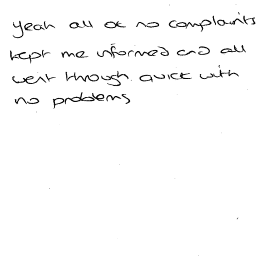 yeah all ok no complaints
kept me informed and all
went through quick with
no problems